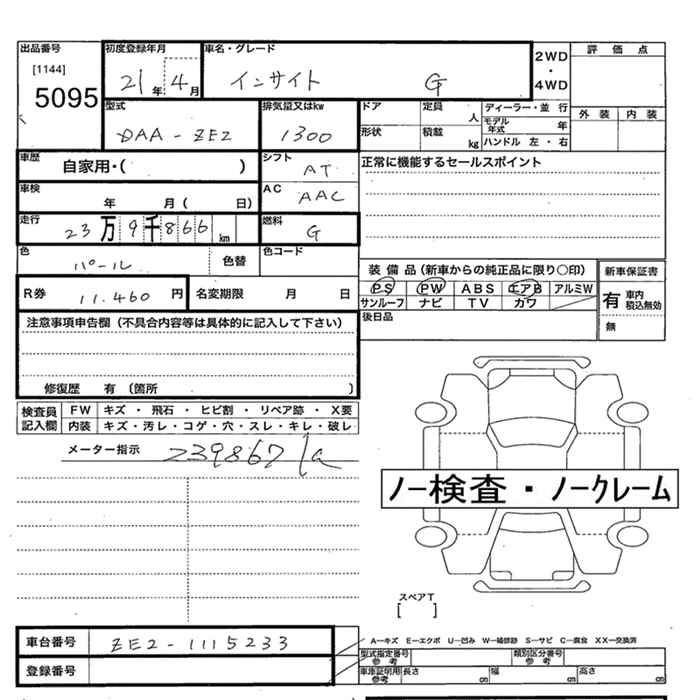 出品番号 初度登録年月 車名・グレード 2WD・4WD 評価点
[1144]
5095
21年 4月
インサイト G
外装 内装
型式 排気量又はkw ドア 定員 人 ディーラー・並行
DAA-ZE2 1300
形状 積載 kg モデル年式 年
ハンドル 左・右
車歴 自家用・( )
シフト AT
正常に機能するセールスポイント
車検 年 月( 日)
AC AAC
走行 23万9千866km
燃料 G
色 パール 色替 色コード
装備品(新車からの純正品に限り○印) 新車保証書
PS PW ABS エアB アルミW
サンルーフ ナビ TV カワ
有 車内積込無効
無
R券 11.460円 名変期限 月 日
後日品
注意事項申告欄(不具合内容等は具体的に記入して下さい)
修復歴 有(箇所 )
検査員記入欄 FW キズ・飛石・ヒビ割・リペア跡・X要
内装 キズ・汚レ・コゲ・穴・スレ・キレ・破レ
メーター指示 239867k
ノー検査・ノークレーム
スペアT
[ ]
車台番号 ZE2-1115233
A−キズ E−エクボ U−凹み W−補修跡 S−サビ C−腐食 XX−交換済
型式指定番号 参考 類別区分番号 参考
登録番号
車庫証明用 参考 長さ cm 幅 cm 高さ cm